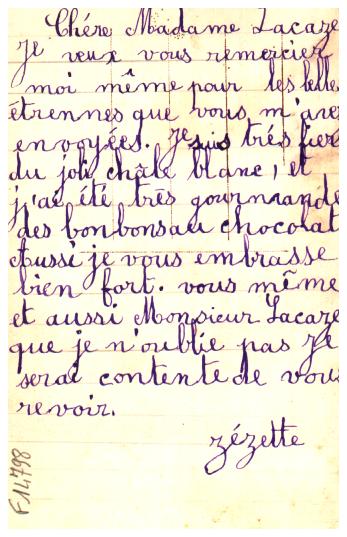 Chére Madame Lacaze
je veux vous remercier
moi même pour les belle
étrennes que vous m'avez
envoyées. Je suis trés fier
du joli châle blanc, et
j'ai été très gourmande
des bonbons au chocolat
Aussi je vous embrasse
bien fort. vous même
et aussi Monsieur Lacaze
que je n'oublie pas Je
serai contente de vous
revoir.
zézette
F14798